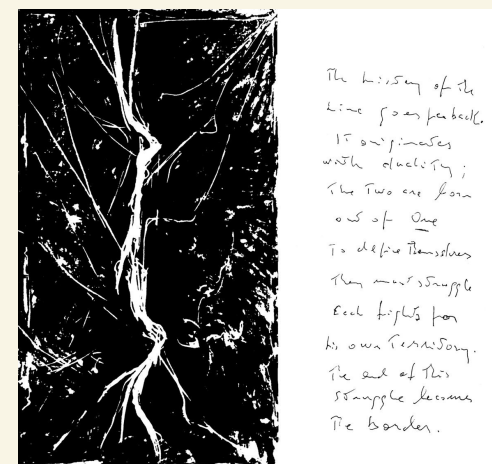 The history of the
Line goes far back.
IT originates
with duality;
The Two are born
out of One
To define Themselves
They must struggle
Each fights for
his own Territory.
The end of This
struggle becomes
The border.